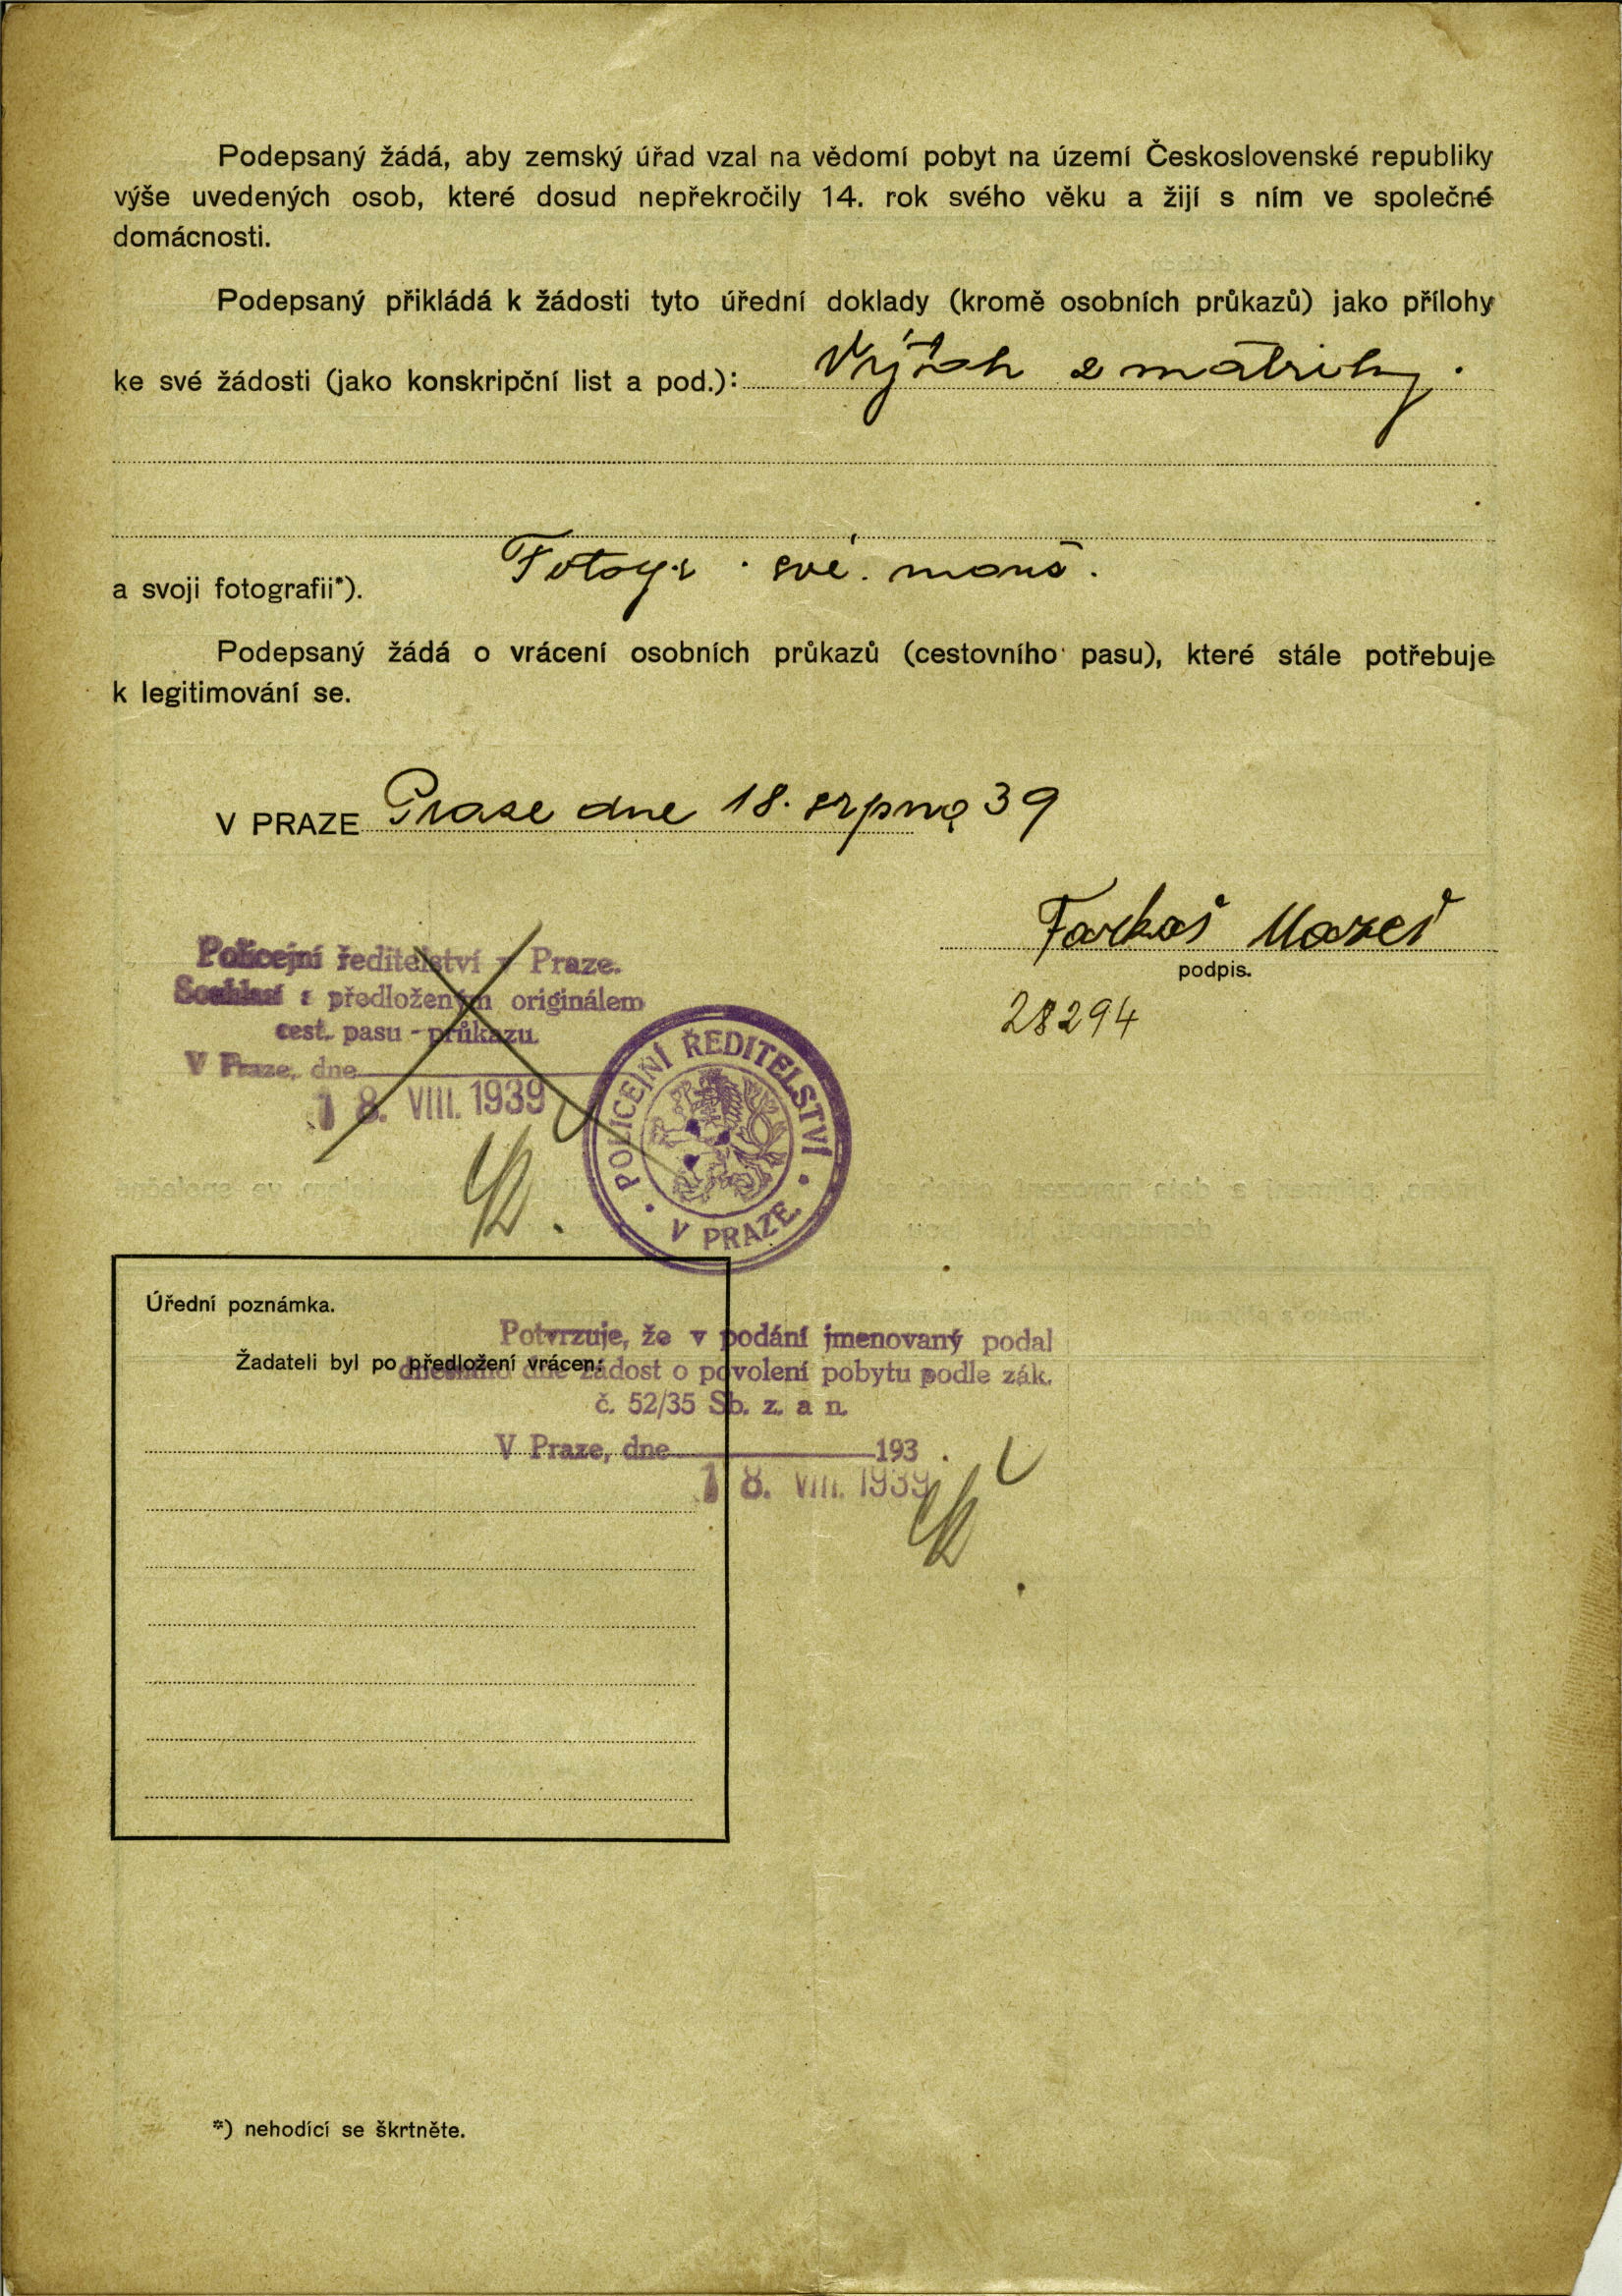 Podepsaný žádá, aby zemský úřad vzal na vědomí pobyt na území Československé republiky
výše uvedených osob, které dosud nepřekročily 14. rok svého věku a žijí s ním ve společné
domácnosti.
Podepsaný přikládá k žádosti tyto úřední doklady (kromě osobních průkazů) jako přílohy
ke své žádosti (jako konskripční list a pod.): Výtah z matriky.
a svoji fotografii*).
Podepsaný žádá o vrácení osobních průkazů (cestovního pasu), které stále potřebuje
k legitimování se.
V PRAZE Praze dne 18. srpna 39
Farkaš
podpis.
28294
Policejní ředitelství v Praze.
Souhlasí s předloženým originálem
cest. pasu - průkazu.
V Praze, dne
18. VIII. 1939
POLICEJNÍ ŘEDITELSTVÍ
V PRAZE
Úřední poznámka.
Potvrzuje, že v podání jmenovaný podal
Žadateli byl po předložení vrácen:
dnešního dne žádost o povolení pobytu podle zák.
č. 52/35 Sb. z. a n.
V Praze, dne 193 .
18. VIII. 1939
*) nehodící se škrtněte.